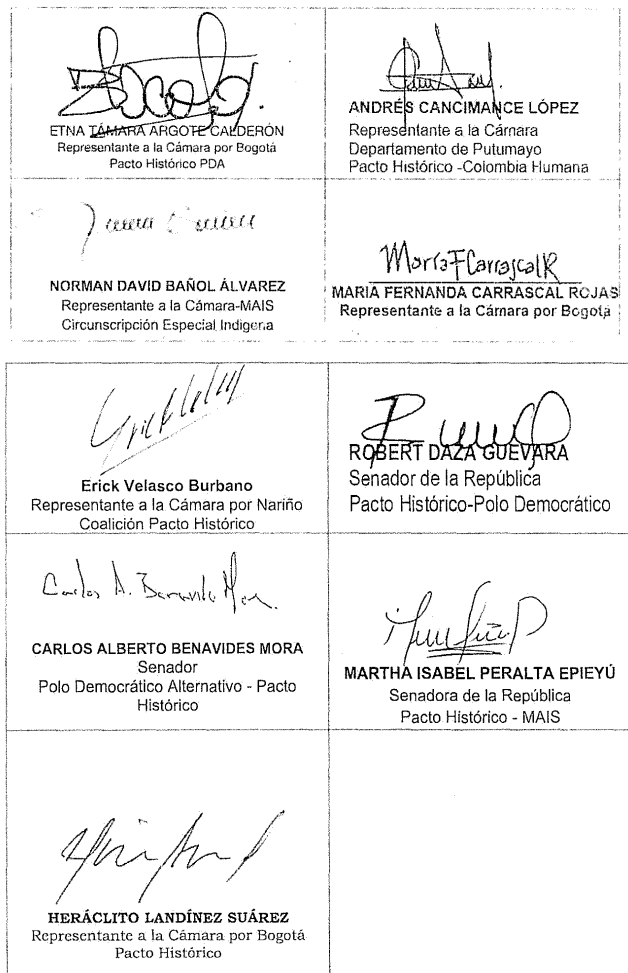 ETNA TÁMARA ARGOTE CALDERÓN
Representante a la Cámara por Bogotá
Pacto Histórico PDA
ANDRÉS CANCIMANCE LÓPEZ
Representante a la Cámara
Departamento de Putumayo
Pacto Histórico -Colombia Humana
NORMAN DAVID BAÑOL ÁLVAREZ
Representante a la Cámara-MAIS
Circunscripción Especial Indigena
María F Carrascal R
MARIA FERNANDA CARRASCAL ROJAS
Representante a la Cámara por Bogotá
Erick Velasco Burbano
Representante a la Cámara por Nariño
Coalición Pacto Histórico
ROBERT DAZA GUEVARA
Senador de la República
Pacto Histórico-Polo Democrático
Carlos A. Benavides Mora
CARLOS ALBERTO BENAVIDES MORA
Senador
Polo Democrático Alternativo - Pacto
Histórico
MARTHA ISABEL PERALTA EPIEYÚ
Senadora de la República
Pacto Histórico - MAIS
HERÁCLITO LANDÍNEZ SUÁREZ
Representante a la Cámara por Bogotá
Pacto Histórico